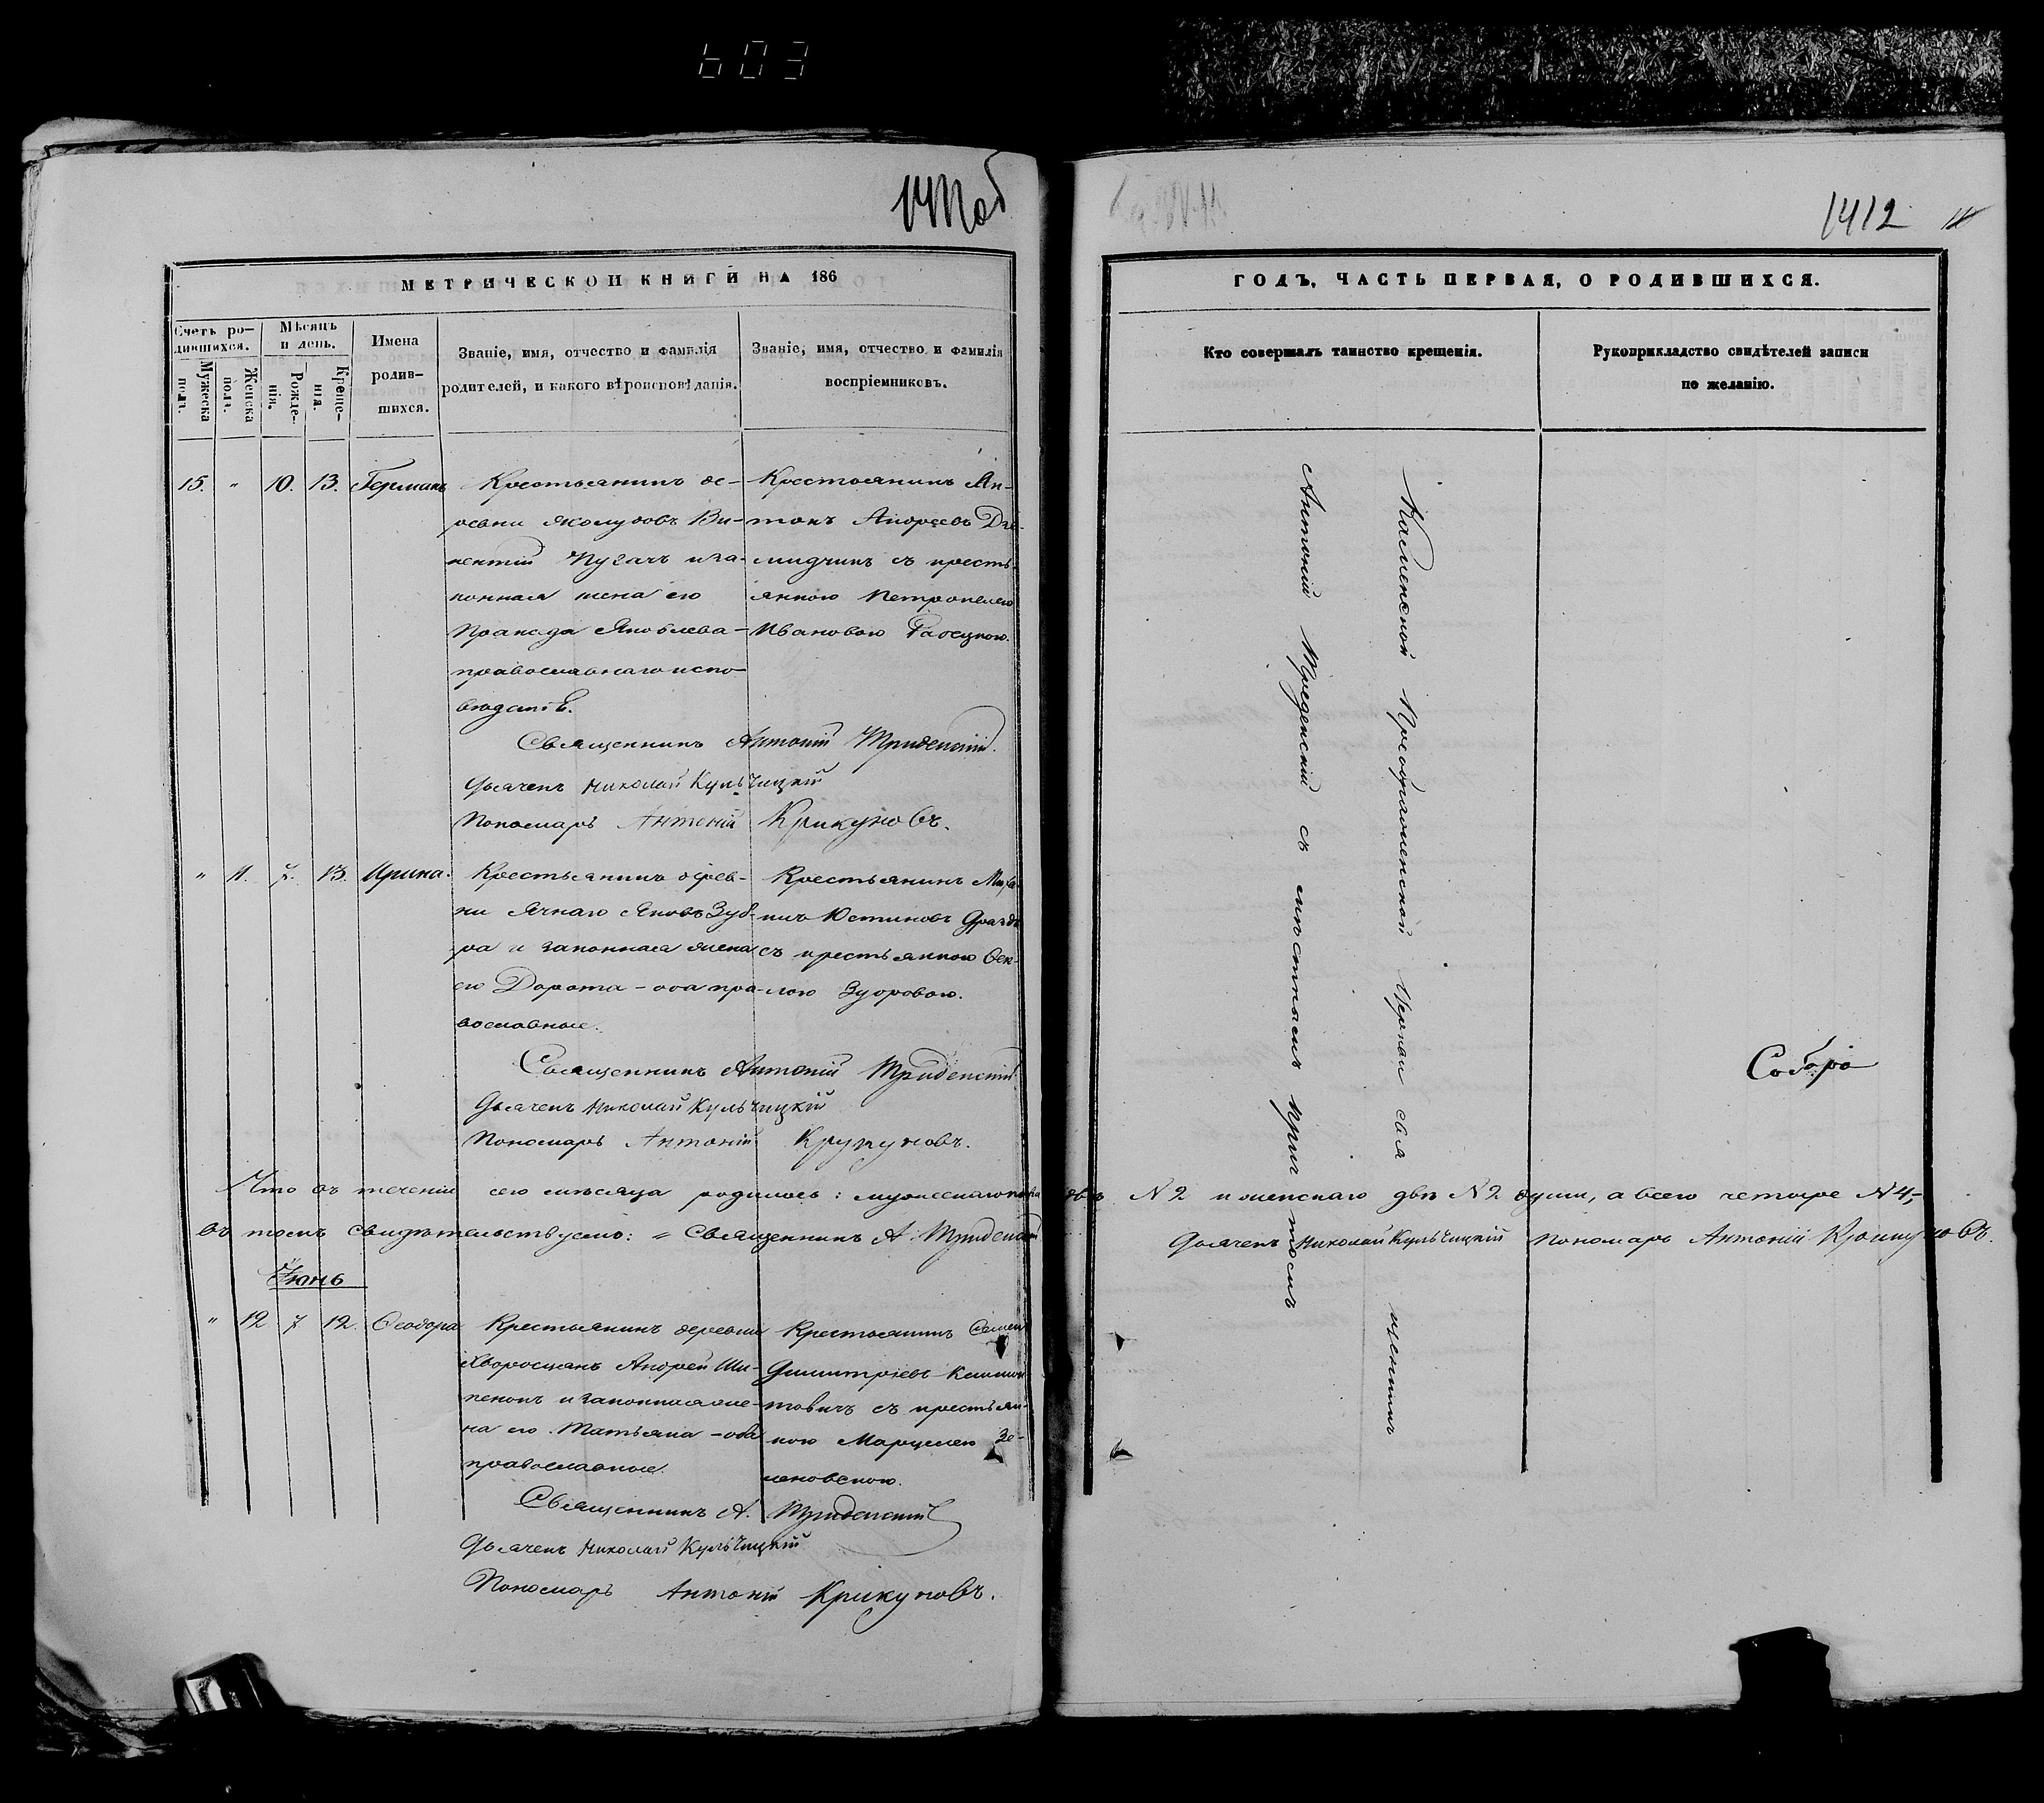 603
1411об
1412
МЕТРИЧЕСКОЙ КНИГИ НА 186
Счетъ ро-
дившихся.
Мужеска
полъ.
Женска
полъ.
Мѣсяцъ
и день.
Рожде-
нія.
Креще-
нія.
Имена
родив-
шихся.
Званіе, имя, отчество и фамилія
родителей, и какого вѣроисповѣданія.
Званіе, имя, отчество и фамилія
воспріемниковъ.
15. " 10. 13. Германъ
Крестьянинъ де-
ревни Викентій
Пугачъ и за-
конная жена его
Праксида Яковлева
православнаго испо-
вѣданія.
Крестьянинъ Ан-
тонъ Андреевъ
съ кресть-
янкою Петронелею
Ивановою
Священникъ Антоній Триденскій.
Дьячекъ Николай Кульчицкій
Пономарь Антоній Крикуновъ.
" 11. 7. 13. Ирина.
Крестьянинъ дерев-
ни Ячнаго Яковъ Зуб-
ра и законная жена
его Дорота – оба пра-
вославные.
Крестьянинъ Миха-
илъ Юстиновъ
съ крестьянкою Фек-
лою
Священникъ Антоній Триденскій
Дьячекъ Николай Кульчицкій
Пономарь Антоній Крикуновъ.
Что въ теченіи сего мѣсяца родилось: мужескаго пола два N 2 и женскаго двѣ N 2 души, а всего четыре N 4,
въ томъ свидѣтельствуемъ: = Священникъ А. Триденскій
Дьячекъ Николай Кульчицкій Пономарь Антоній Крикуновъ.
Іюнь
" 12 7 12. Феодора
Крестьянинъ деревни
Хворосцянъ Андрей Ши-
пенокъ и законная же-
на его Татьяна – оба
православные.
Крестьянинъ Семенъ
Димитріевъ
съ крестьян-
кою Марцелею Зе-
леновскою.
Священникъ А. Триденскій
Дьячекъ Николай Кульчицкій
Пономарь Антоній Крикуновъ.
ГОДЪ, ЧАСТЬ ПЕРВАЯ, О РОДИВШИХСЯ.
Кто совершалъ таинство крещенія.
Рукоприкладство свидѣтелей записи
по желанію.
Каменской Преображенской Церкви свя
щенникъ
Антоній Триденскій съ мѣстнымъ причтомъ